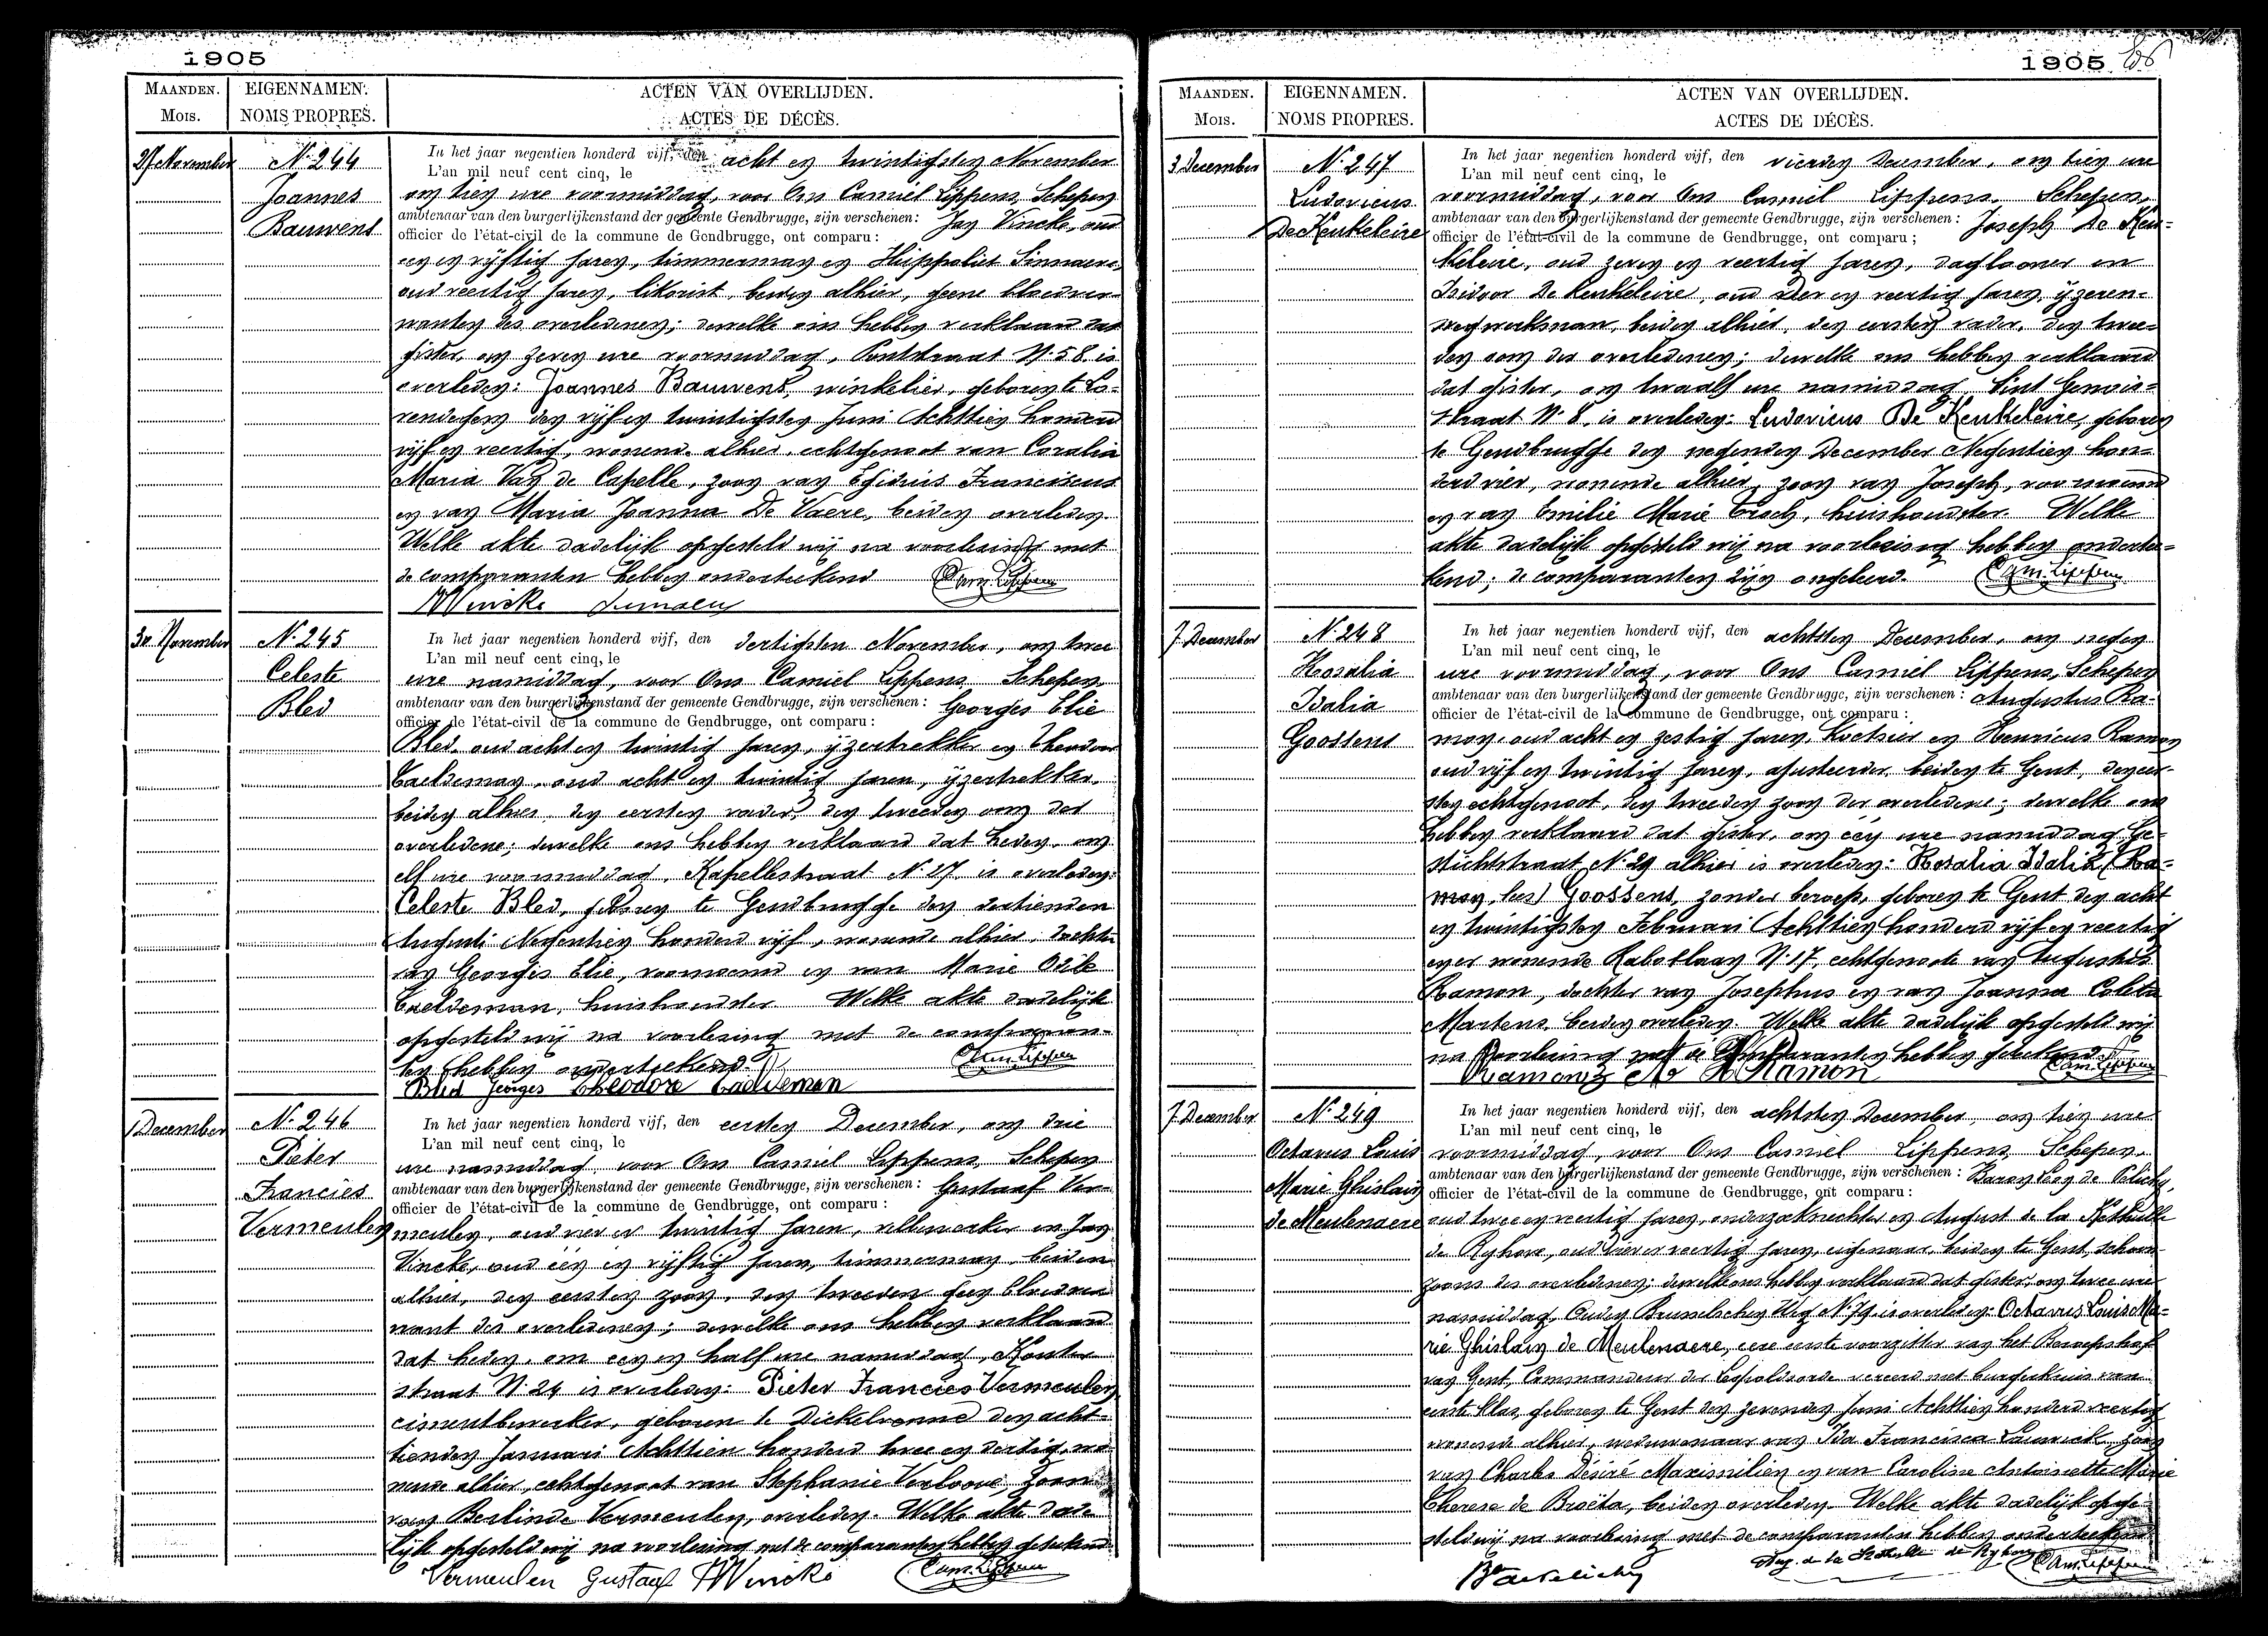 1905
MAANDEN. EIGENNAMEN. ACTEN VAN OVERLIJDEN.
MOIS. NOMS PROPRES. ACTES DE DÉCÈS.
27 November N. 244
Joannes
Bauwens
In het jaar negentien honderd vijf, den acht en twintigsten November
L'an mil neuf cent cinq, le
om tien ure voormiddag, voor Ons Camiel Lippens, Schepen
ambtenaar van den burgerlijkenstand der gemeente Gendbrugge, zijn verschenen: Jan Vincke, oud
officier de l'état-civil de la commune de Gendbrugge, ont comparu:
een en vijftig jaren, timmerman en Hippoliet
oud veertig jaren, likorist, beiden alhier, geene bloedver-
wanten des overledenen; dewelke ons hebben verklaard dat
gister, om zeven ure voormiddag, N. 58 is
overleden: Joannes Bauwens, winkelier, geboren te Lo-
rendegem den vijf en twintigsten Juni Achttien honderd
vijf en veertig, wonende alhier, echtgenoot van Coralia
Maria Van de Capelle, zoon van Egidius Franciscus
en van Maria Joanna De Vaere, beiden overleden.
Welke akte dadelijk opgesteld wij na voorlezing met
de comparanten hebben onderteekend Cam. Lippens
J Vincke
30 November N. 245
Celeste
Bled
In het jaar negentien honderd vijf, den dertigsten November, om twee
L'an mil neuf cent cinq, le
ure namiddag, voor Ons Camiel Lippens, Schepen
ambtenaar van den burgerlijkenstand der gemeente Gendbrugge, zijn verschenen: Georges Elie
officier de l'état-civil de la commune de Gendbrugge, ont comparu:
Bled, oud acht en twintig jaren, ijzertrekker en Theodoor
Caeldeman, oud acht en twintig jaren, ijzertrekker,
beiden alhier, den eersten vader, den tweeden oom der
overledene; dewelke ons hebben verklaard dat heden, om
elf ure voormiddag, Kapellestraat N. 17, is overleden:
Celeste Bled, geboren te Gendbrugge den dertienden
Augusti Negentien honderd vijf, wonende alhier, dochter
van Georges Elie, voornoemd en van Marie Odile
Caeldeman, huishoudster. Welke akte dadelijk
opgesteld wij na voorlezing met de comparan-
ten hebben onderteekend. Cam. Lippens
Bled Georges Theodore Caeldeman
1 December N. 246
Pieter
Francies
Vermeulen
In het jaar negentien honderd vijf, den eersten December, om drie
L'an mil neuf cent cinq, le
ure namiddag, voor Ons Camiel Lippens, Schepen
ambtenaar van den burgerlijkenstand der gemeente Gendbrugge, zijn verschenen: Gustaaf Ver-
officier de l'état-civil de la commune de Gendbrugge, ont comparu:
meulen, oud vier en twintig jaren, vellenwerker en Jan
Vincke, oud één en vijftig jaren, timmerman, beiden
alhier, den eersten zoon, den tweeden geen bloedver-
want des overledenen; dewelke ons hebben verklaard
dat heden, om een en half ure namiddag, Kouter
straat N. 24 is overleden: Pieter Francies Vermeulen
cimentbewerker, geboren te Dickelvenne den acht-
tienden Januari Achttien honderd twee en dertig, wo-
nende alhier, echtgenoot van Stephanie Verloove, zoon
van Berlinde Vermeulen, overleden. Welke akte dade-
lijk opgesteld wij na voorlezing met de comparanten hebben geteekend
Vermeulen Gustaaf J Vincke Cam. Lippens
1905
MAANDEN. EIGENNAMEN. ACTEN VAN OVERLIJDEN.
MOIS. NOMS PROPRES. ACTES DE DÉCÈS.
3 December N. 247
Ludovicus
De Keukeleire
In het jaar negentien honderd vijf, den vierden December, om tien ure
L'an mil neuf cent cinq, le
voormiddag, voor Ons Camiel Lippens, Schepen,
ambtenaar van den burgerlijkenstand der gemeente Gendbrugge, zijn verschenen: Joseph De Keu-
officier de l'état-civil de la commune de Gendbrugge, ont comparu;
keleire, oud zeven en veertig jaren, daglooner en
Isidoor De Keukeleire, oud vier en veertig jaren, ijzeren-
weg werkman, beiden alhier, den eersten vader, den twee-
den oom des overledenen; dewelke ons hebben verklaard
dat gister, om twaalf ure namiddag, Sint Gerois-
straat N. 8, is overleden: Ludovicus De Keukeleire, geboren
te Gendbrugge den negenden December Negentien hon-
derd vier, wonende alhier, zoon van Joseph, voornoemd
en van Emilie Marie, huishoudster. Welke
akte dadelijk opgesteld wij na voorlezing hebben onderteek-
kend; de comparanten zijn ongeleerd. Cam. Lippens
7 December N. 248
Rosalia
Idalia
Goossens
In het jaar negentien honderd vijf, den achtsten December, om negen
L'an mil neuf cent cinq, le
ure voormiddag, voor Ons Camiel Lippens, Schepen
ambtenaar van den burgerlijkenstand der gemeente Gendbrugge, zijn verschenen: Augustus Ra-
officier de l'état-civil de la commune de Gendbrugge, ont comparu:
mon, oud acht en zestig jaren, koetsier en Henricus Ramon
oud vijf en twintig jaren, ajusteerder, beiden te Gent, den eer-
sten echtgenoot, den tweeden zoon der overledene; dewelke ons
hebben verklaard dat gister, om één ure namiddag, Ge-
stichtstraat, N. 29 alhier is overleden: Rosalia Idalia (Ra-
mon, lees) Goossens, zonder beroep, geboren te Gent den acht
en twintigsten Februari Achttien honderd vijf en veertig
en er wonende Rabotlaan N. 17, echtgenoote van Augustus
Ramon, dochter van Josephus en van Joanna Coleta
Martens, beiden overleden. Welke akte dadelijk opgesteld wij
na voorlezing met de comparanten hebben geteekend. Cam. Lippens
Ramon H Ramon
7 December N. 249
Octavus Louis
Marie Ghislain
de Meulenaere
In het jaar negentien honderd vijf, den achtsten December, om tien ure
L'an mil neuf cent cinq, le
voormiddag, voor Ons Camiel Lippens, Schepen,
ambtenaar van den burgerlijkenstand der gemeente Gendbrugge, zijn verschenen: Baron Leon de Pelichy,
officier de l'état-civil de la commune de Gendbrugge, ont comparu:
oud twee en veertig jaren, onderzoeksrechter en August de la Kethulle
de Ryhove, oud vier en veertig jaren, eigenaar, beiden te Gent, schoon-
zoons des overledenen; dewelke ons hebben verklaard dat gister, om twee ure
namiddag, Ouden Brusselschen Weg N. 79 is overleden: Octavus Louis Ma-
rie Ghislain de Meulenaere, eere eerste voorzitter van het Beroepshof
van Gent, Commandeur der Leopoldsorde vereerd met burgerkruis van
eerste klas, geboren te Gent den zevenden Juni Achttien honderd veertig
wonende alhier, weduwenaar van Ida Francisca Lauwick, zoon
van Charles Désiré Maximilien en van Caroline Antoinette Marie
Therese de Broëta, beiden overleden. Welke akte dadelijk opge-
steld wij na voorlezing met de comparanten hebben onderteekend
Bon de Pelichy Aug. de la Kethulle de Ryhove Cam. Lippens